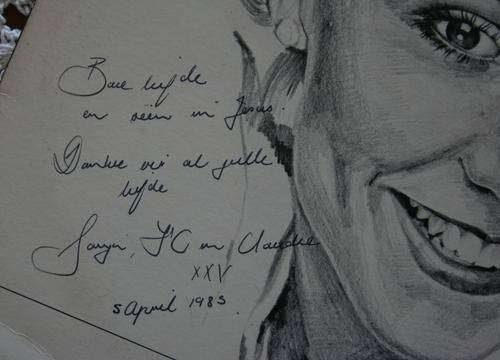 Baie liefde
en seën in Jesus.
Dankie vir al julle
liefde
en Claudie
XXV
5 April 1985.